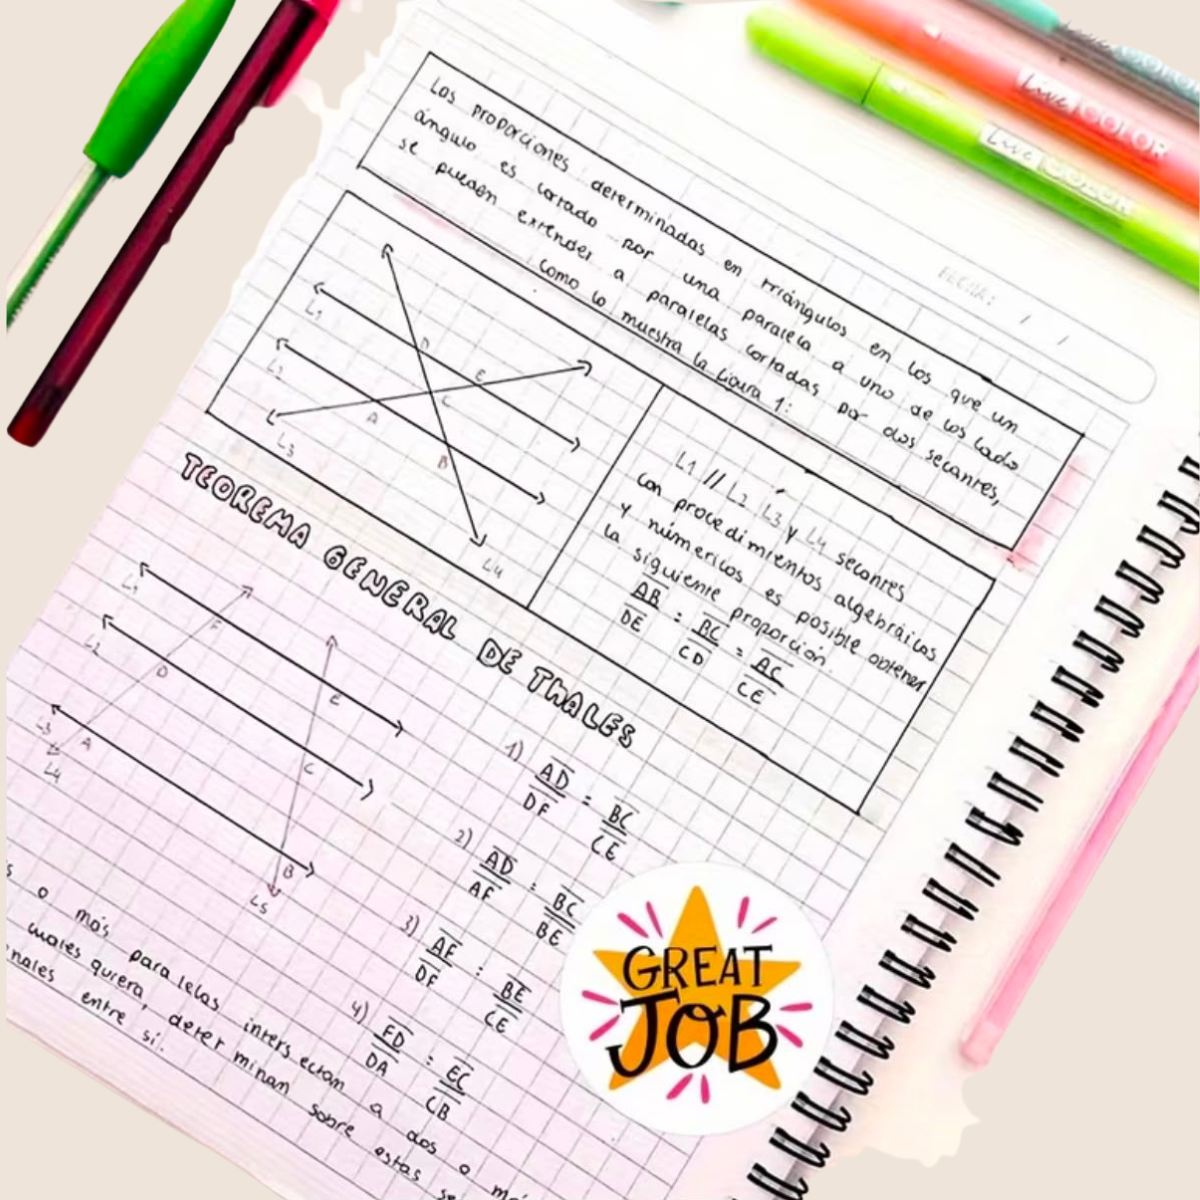 FECHA: / /
Las proporciones determinadas en triángulos en los que un
ángulo es cortado por una paralela a uno de los lado
se pueden extender a paralelas cortadas por dos secantes,
como lo muestra la figura 1:
L1
L2
L3
L4
D
E
C
A
B
L1 // L2 L3 y L4 secantes
con procedimientos algebráicos
y númericos es posible obtener
la siguiente proporción.
AB/DE = BC/CD = AC/CE
TEOREMA GENERAL DE THALES
L1
L2
L3
L4
L5
F
D
A
E
C
B
1) AD/DF = BC/CE
2) AD/AF = BC/BE
3) AF/DF = BE/CE
4) FD/DA = EC/CB
s o más paralelas intersectan a dos o má
cuales quiera, determinan sobre estas se
nales entre sí.
GREAT
JOB
Live COLOR
Live COLOR